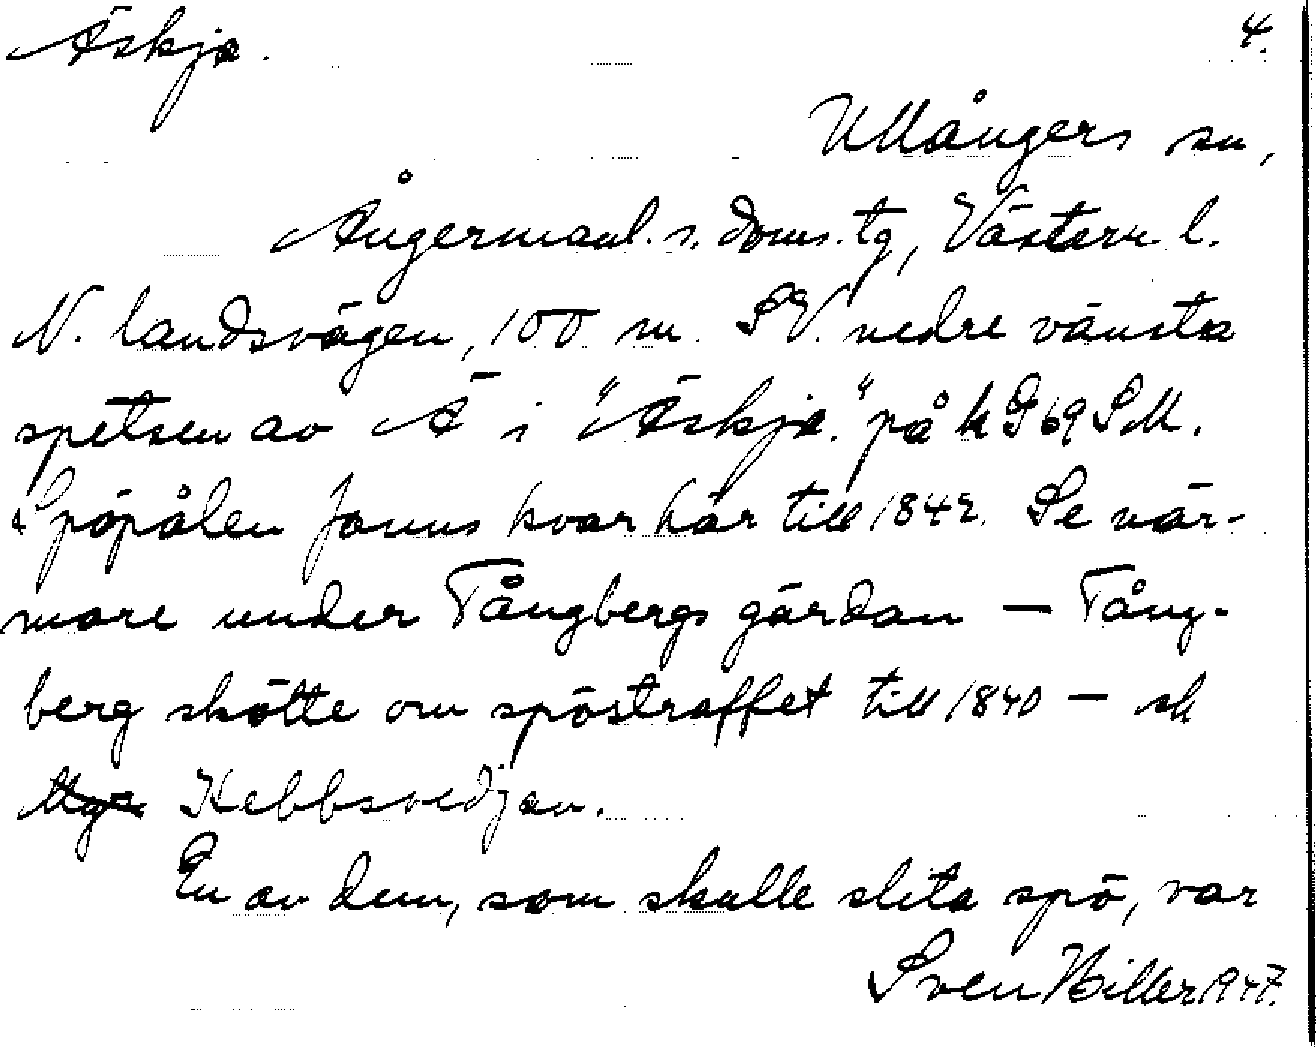 Äskja. 4.
Ullångers sn,
Ångermanl. s. doms. tg, Västern. l.
N. landsvägen, 100 m. SV. nedre vänstra
spetsen av Ä i "Äskja." på k G 69 SM.
Spöpålen fanns kvar här till 1842. Se när-
mare under Tångbergs gärdan — Tång-
berg skötte om spöstraffet till 1840 — sk
Kebbsvedjan.
En av dem, som skulle slita spö, var
Sven Hiller 1947.